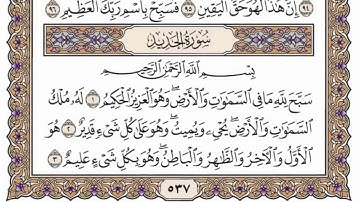 ٩٤ إِنَّ هَٰذَا لَهُوَ حَقُّ ٱلْيَقِينِ ٩٥ فَسَبِّحْ بِٱسْمِ رَبِّكَ ٱلْعَظِيمِ ٩٦
سُورَةُ الحَدِيدِ
بِسْمِ ٱللَّهِ ٱلرَّحْمَٰنِ ٱلرَّحِيمِ
سَبَّحَ لِلَّهِ مَا فِى ٱلسَّمَٰوَٰتِ وَٱلْأَرْضِ ۖ وَهُوَ ٱلْعَزِيزُ ٱلْحَكِيمُ ١ لَهُۥ مُلْكُ
ٱلسَّمَٰوَٰتِ وَٱلْأَرْضِ ۖ يُحْىِۦ وَيُمِيتُ ۖ وَهُوَ عَلَىٰ كُلِّ شَىْءٍ قَدِيرٌ ٢ هُوَ
ٱلْأَوَّلُ وَٱلْـَٔاخِرُ وَٱلظَّٰهِرُ وَٱلْبَاطِنُ ۖ وَهُوَ بِكُلِّ شَىْءٍ عَلِيمٌ ٣
٥٣٧